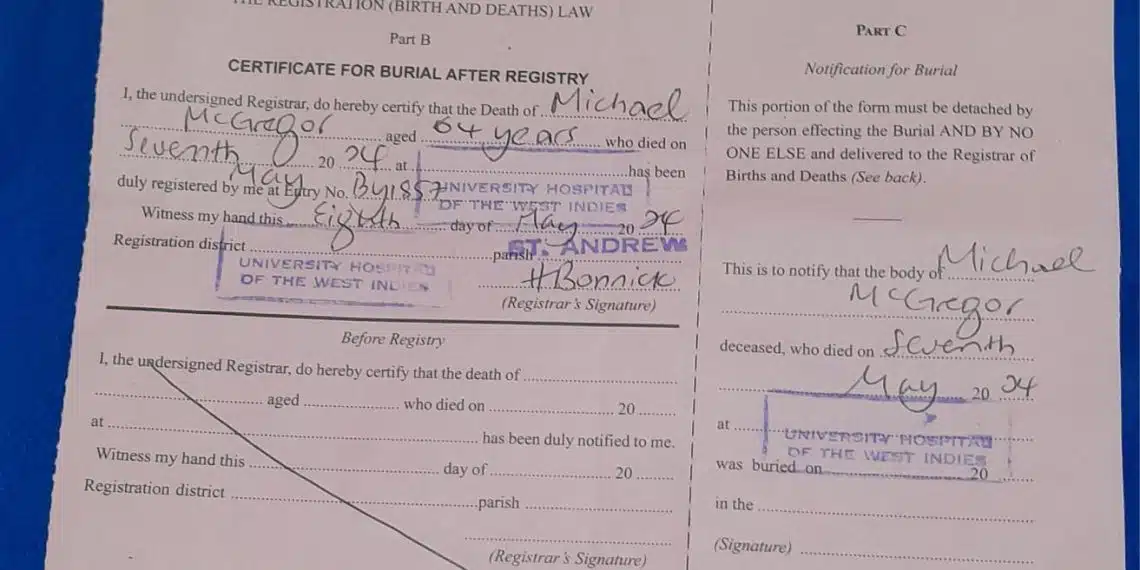 THE REGISTRATION (BIRTH AND DEATHS) LAW
Part B
CERTIFICATE FOR BURIAL AFTER REGISTRY
I, the undersigned Registrar, do hereby certify that the Death of Michael
McGregor aged 64 years who died on
Seventh May 20 24 at has been
duly registered by me at Entry No. UNIVERSITY HOSPITAL
OF THE WEST INDIES
Witness my hand this Eighth day of May 20 24
Registration district parish ST. ANDREW
UNIVERSITY HOSPITAL
OF THE WEST INDIES
H Bonnick
(Registrar's Signature)
Before Registry
I, the undersigned Registrar, do hereby certify that the death of
aged who died on 20
at has been duly notified to me.
Witness my hand this day of 20
Registration district parish
(Registrar's Signature)
PART C
Notification for Burial
This portion of the form must be detached by
the person effecting the Burial AND BY NO
ONE ELSE and delivered to the Registrar of
Births and Deaths (See back).
This is to notify that the body of Michael
McGregor
deceased, who died on Seventh
May 20 24
at UNIVERSITY HOSPITAL
OF THE WEST INDIES
was buried on 20
in the
(Signature)